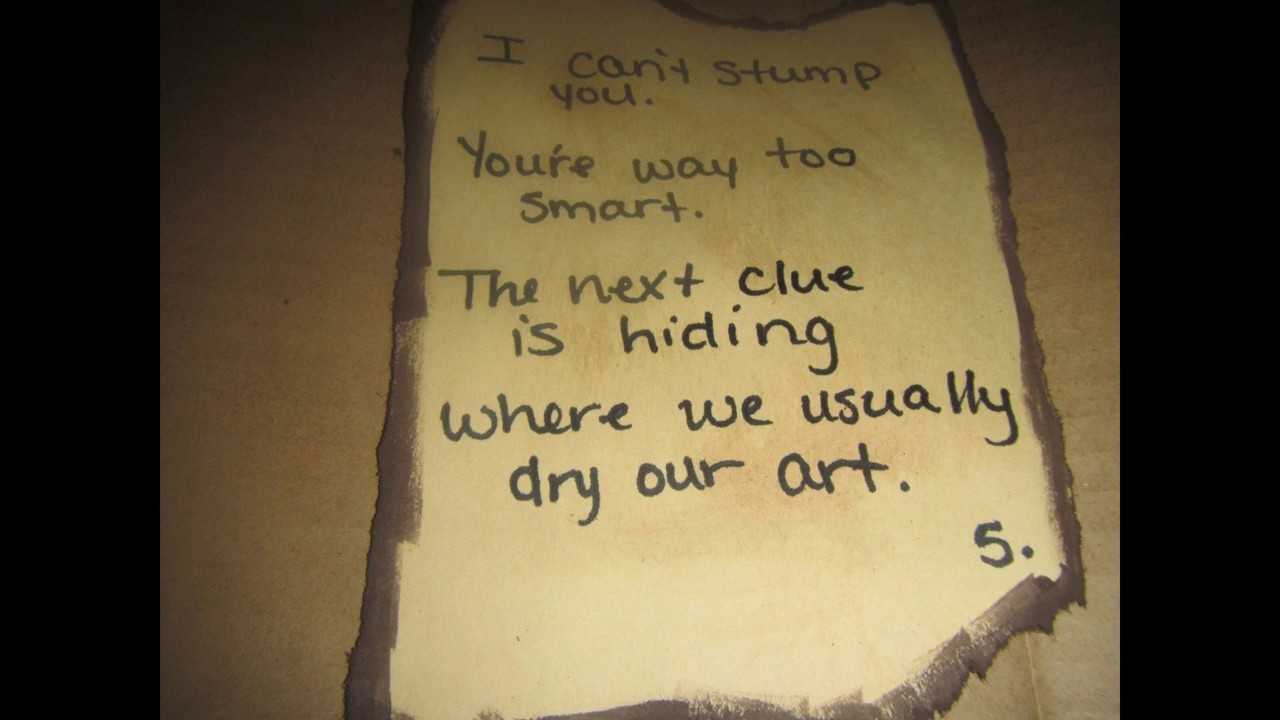 I can't stump
you.
You're way too
smart.
The next clue
is hiding
where we usually
dry our art.
5.